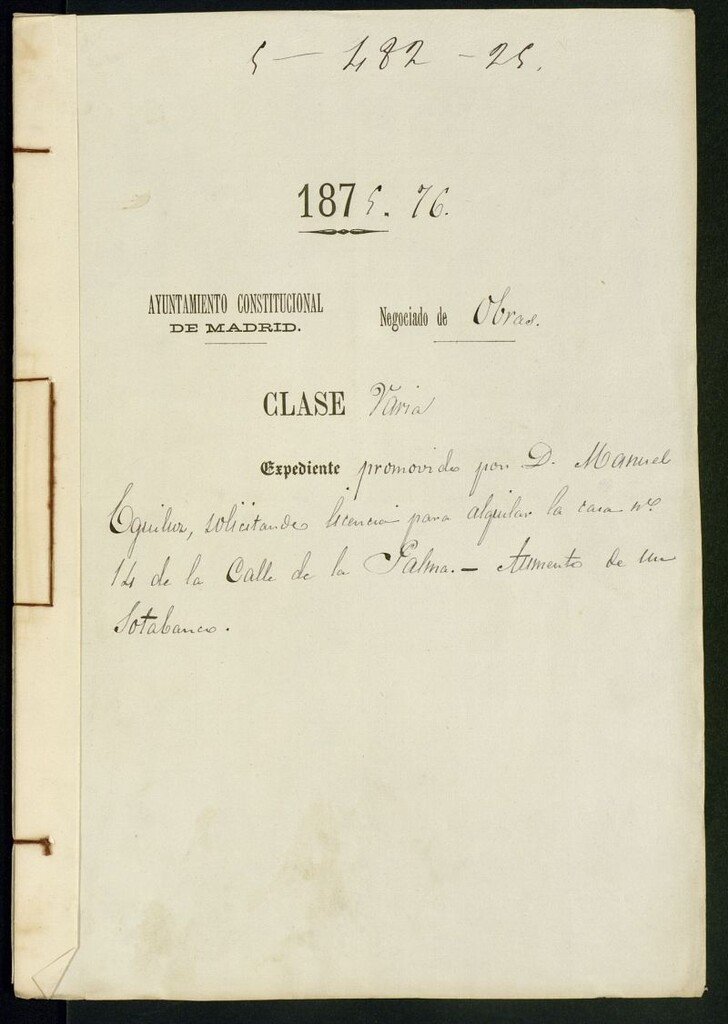 5 — 482 - 25.
1875. 76.
AYUNTAMIENTO CONSTITUCIONAL
DE MADRID.
Negociado de Obras.
CLASE Varia
Expediente promovido por D. Manuel
Eguiluz, solicitando licencia para alquilar la casa nº
14 de la Calle de la Palma. — Aumento de un
Sotabanco.